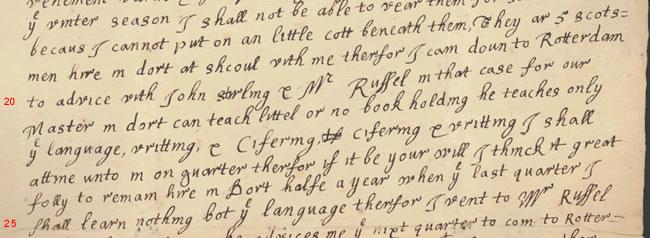 yᵉ vnter season I shall not be able to vear them for
becaus I cannot put on an little cott beneath them, They ar 5 scots=
men hire in dort at shcoul vith me therfor I cam doun to Rotterdam
20 to advice vith John stirling & Mʳ Russel in that case for our
Master in dort can teach littel or no book holding he teaches only
yᵉ language, vritting, & Cifering, cifering & vritting I shall
attine unto in on quarter therfor if it be your vill I thinck it great
folly to remain hire in Dort halfe a year when yᵉ last quarter I
25 shall learn nothing bot yᵉ language therfor I vent to Mʳ Russel
he advices me yᵉ nixt quarter to com to Rotter=